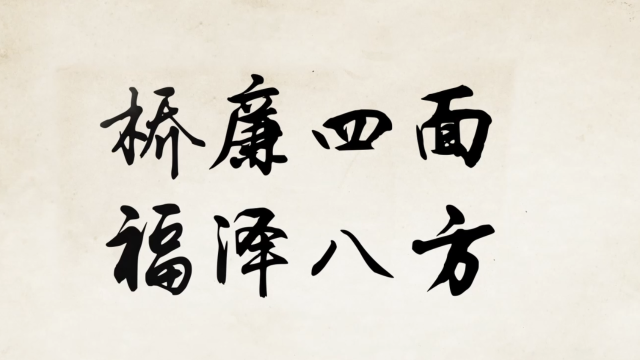 桥廉四面
福泽八方